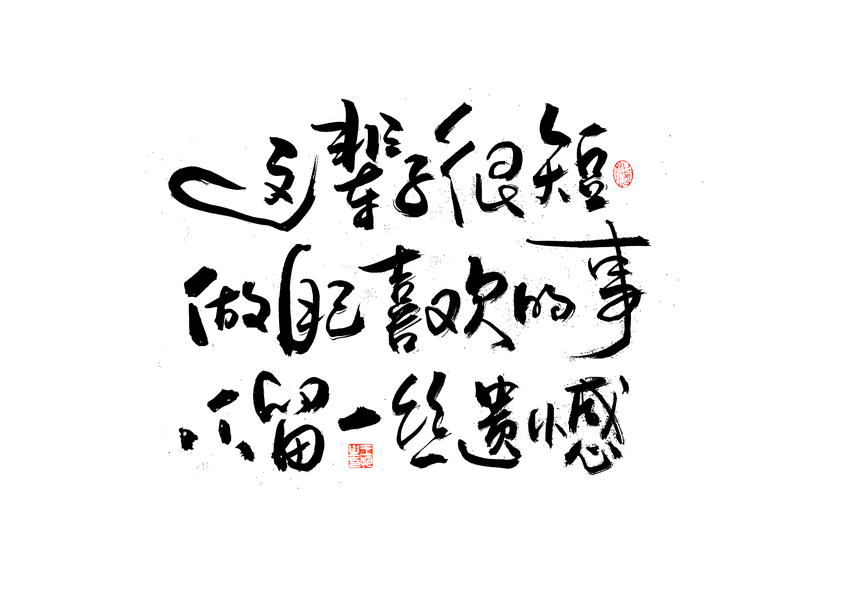 这辈子很短
做自己喜欢的事
不留一丝遗憾